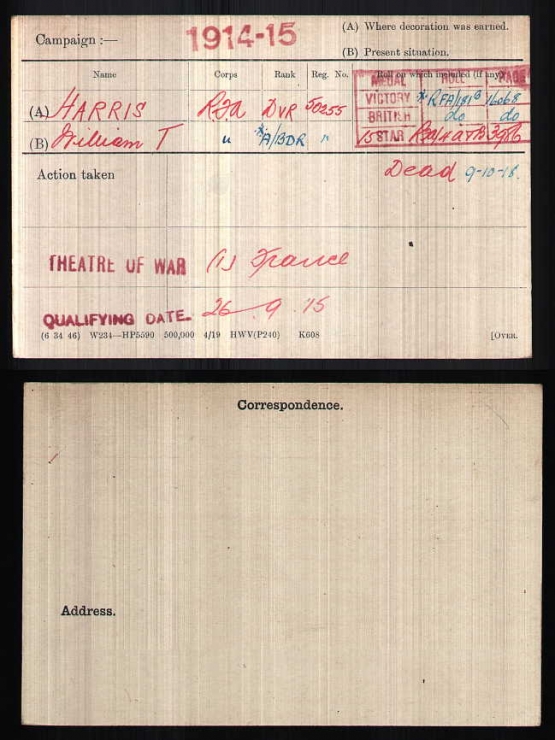 Campaign :— 1914-15 (A) Where decoration was earned.
(B) Present situation.
Name Corps Rank Reg. No. Roll on which included (if any)
MEDAL ROLL PAGE
(A) HARRIS RFA DVR 50255 VICTORY *RFA/181B 16068
BRITISH do do
(B) William T " *A/BDR " 15 STAR
Action taken Dead 9-10-18.
THEATRE OF WAR (1) France
QUALIFYING DATE. 26 . 9 . 15
(6 34 46) W234—HP5590 500,000 4/19 HWV(P240) K608 [OVER.
Correspondence.
Address.